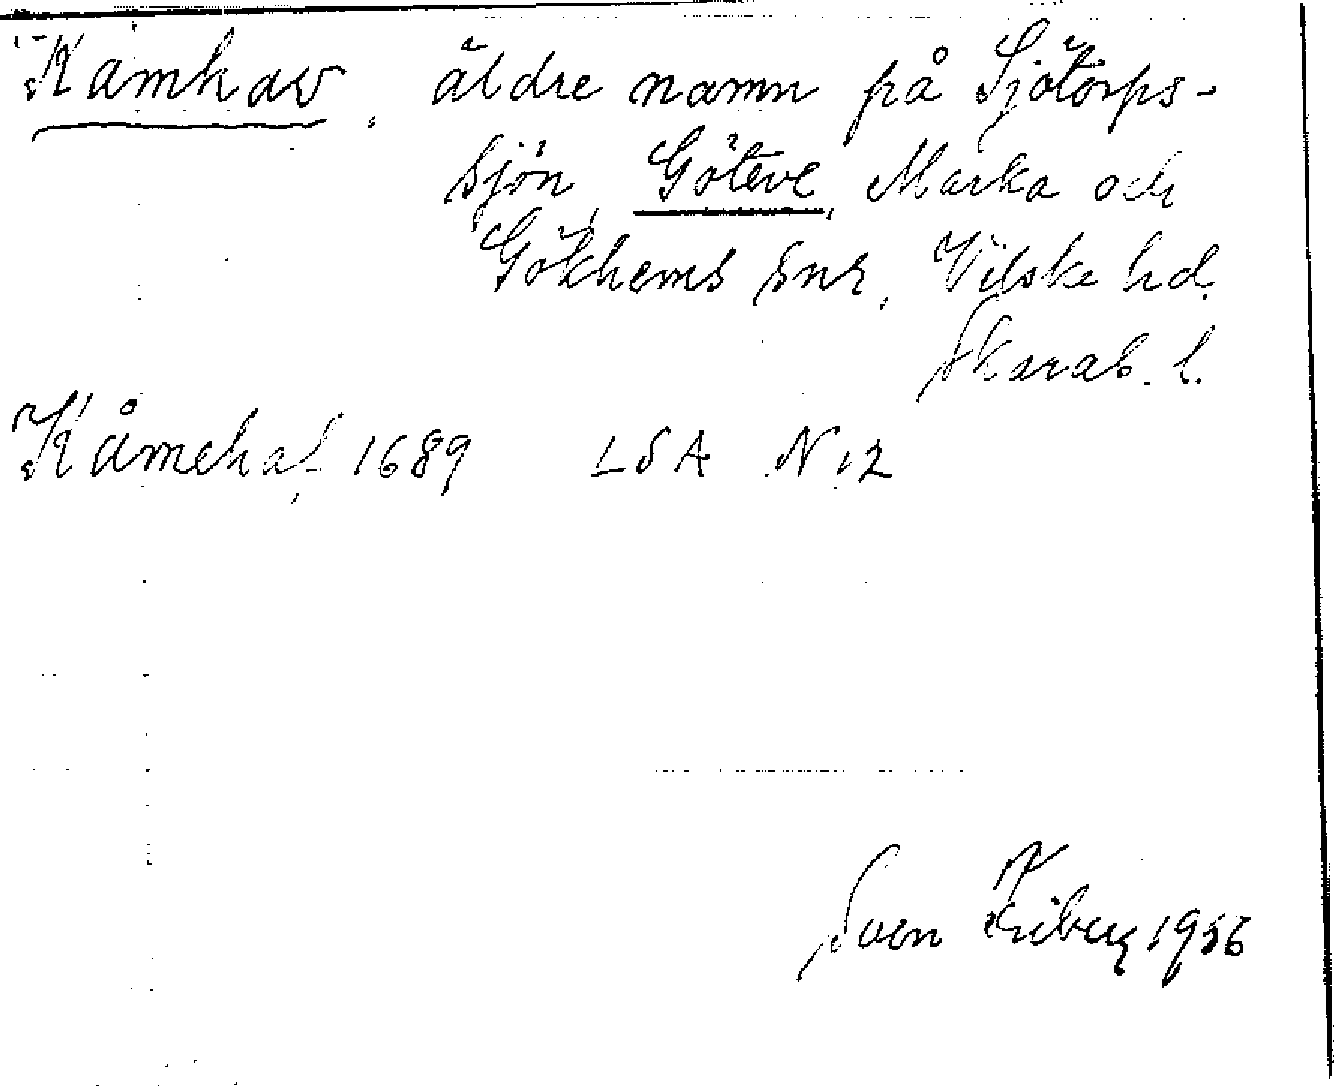 Kåmhav, äldre namn på Sjötorps-
sjön, Göteve, Marka och
Gökhems snr, Vilske hd.
Skarab. l.
Kåmehaf 1689 LSA N 12
Sven Friberg 1956